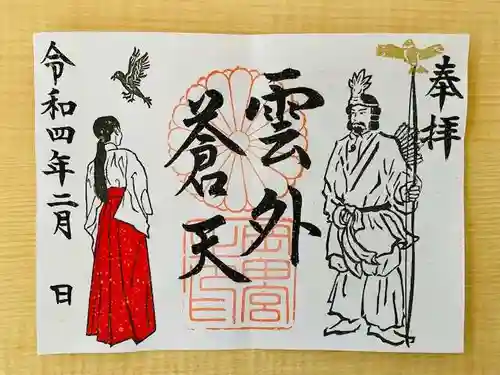 奉拝
雲外
蒼天
令和四年二月 日